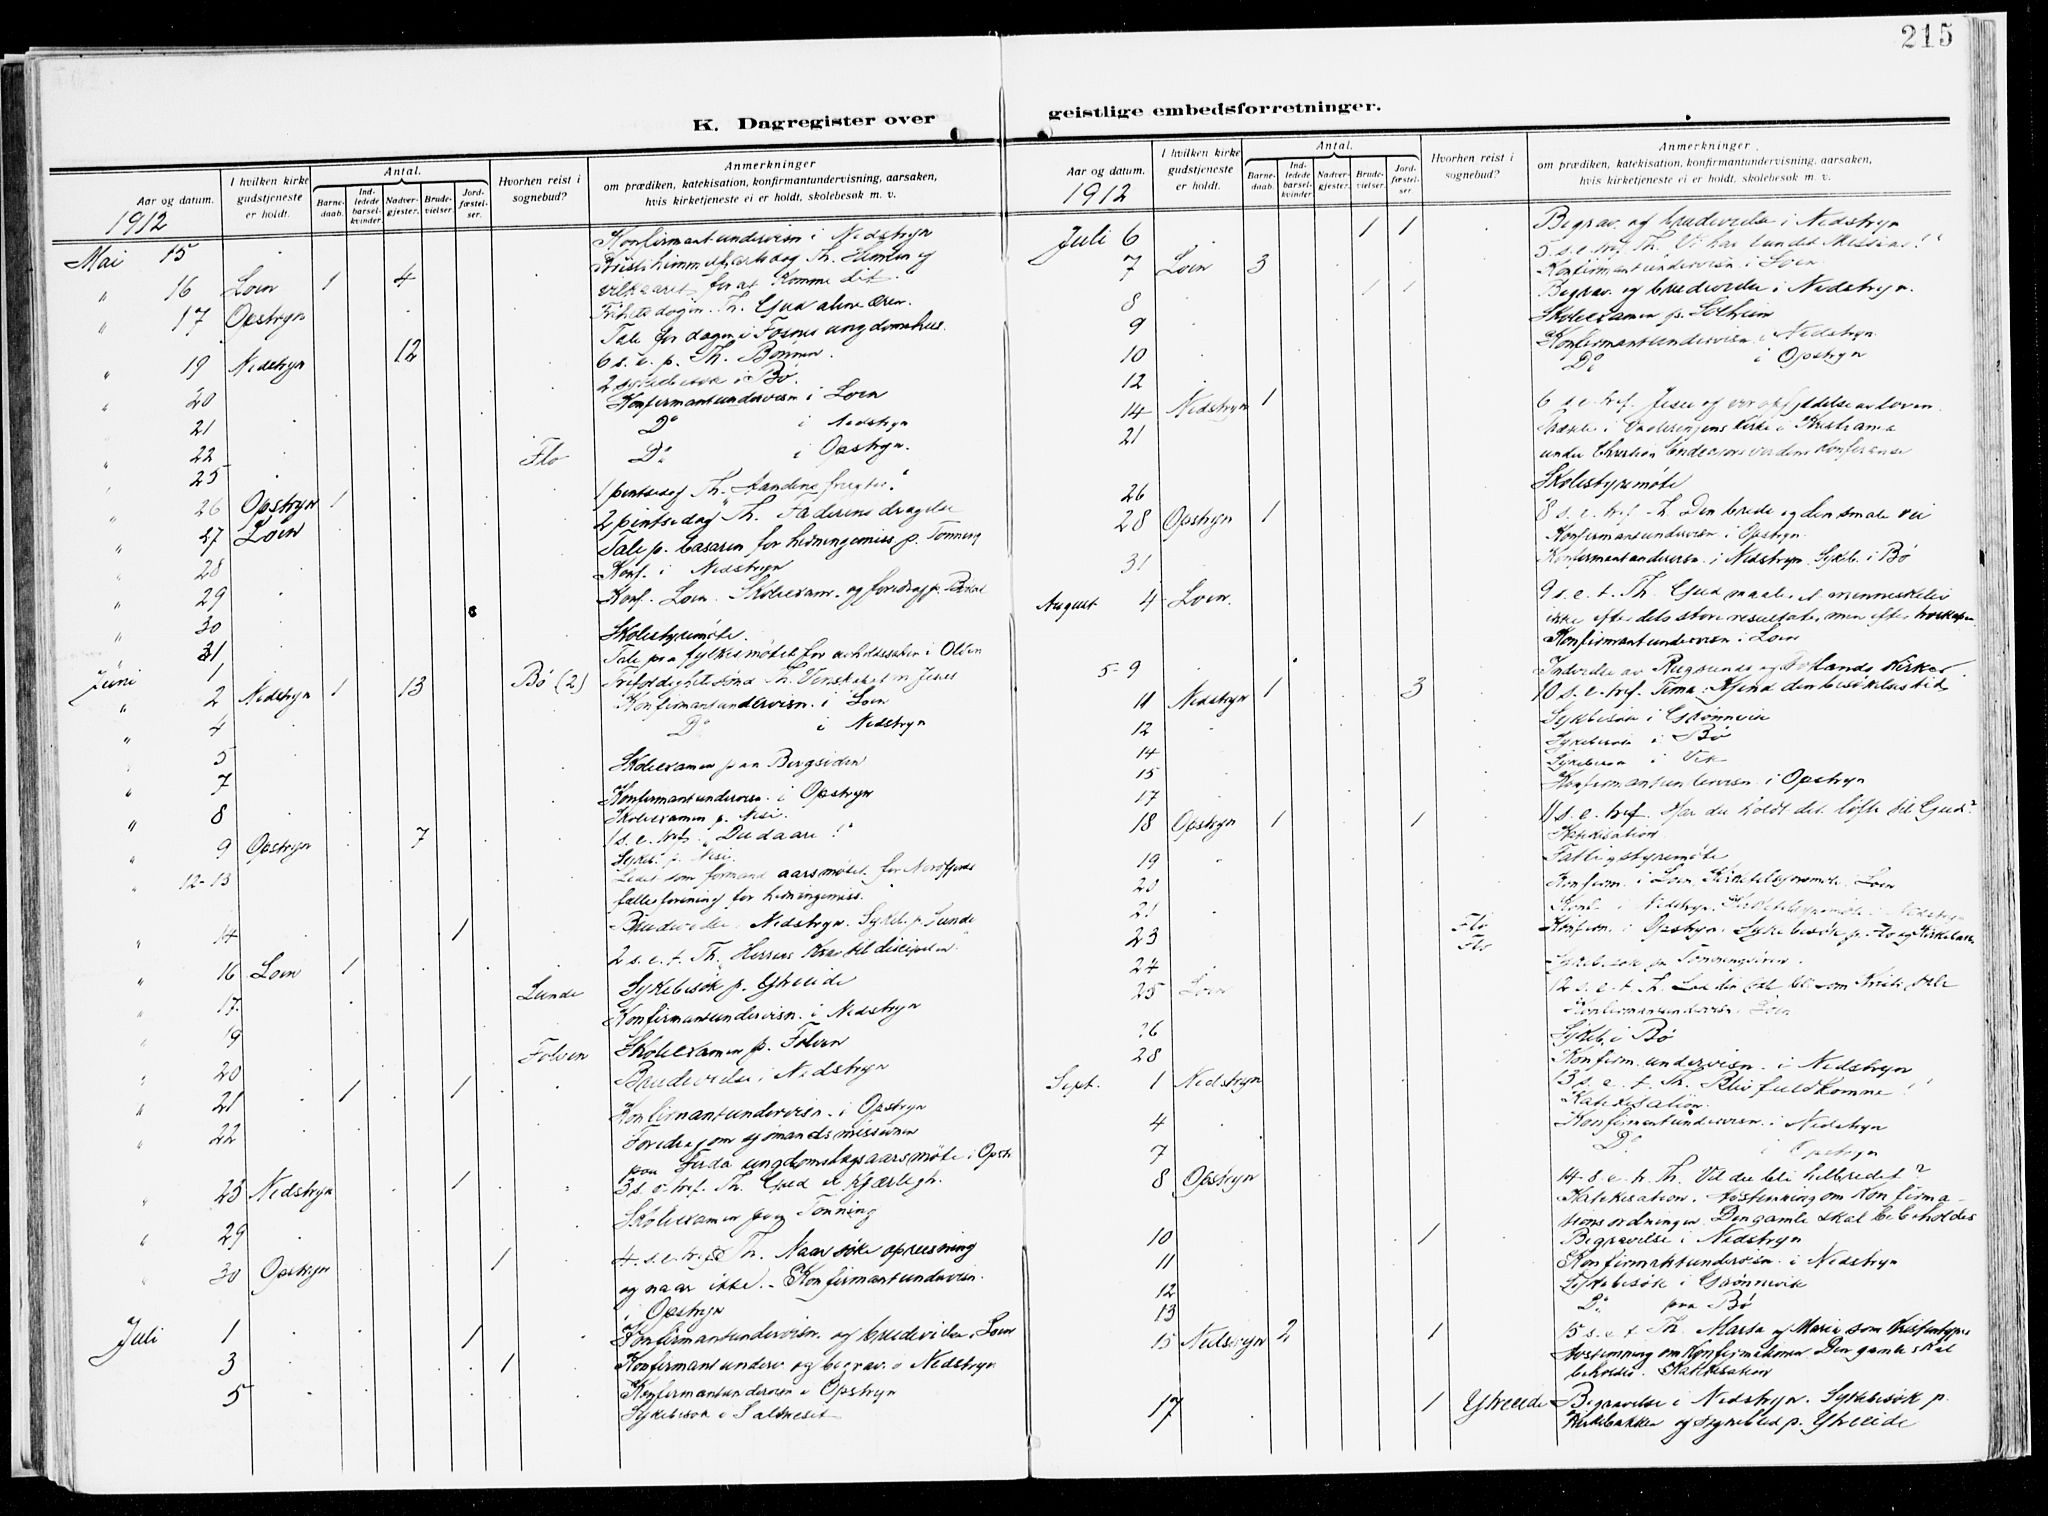 215
K. Dagregister over geistlige embedsforretninger.
Aar og datum.
I hvilken kirke gudstjeneste er holdt.
Antal.
Barnedaab.
Indledede barselkvinder.
Nadvergjester.
Brudevielser.
Jordfæstelser.
Hvorhen reist i sognebud?
Anmerkninger
om prædiken, katekisation, konfirmantundervisning, aarsaken,
hvis kirketjeneste ei er holdt, skolebesøk m. v.
1912
Mai 15 Konfirmantundervisn i Nedstryn
" 16 Loen 1 4 Kristi himmelfartsdag Th. Himlen og
vilkaaret for at komme dit.
" 17 Opstryn Frihetsdagen. Th. Gud alene æren.
Tale for dagen i Fosnes ungdomshus.
" 19 Nedstryn 12 6 s. e. p. Th. Bønnen.
2 sykebesøk i Bø.
" 20 Konfirmantundervisn i Loen
21 Do i Nedstryn
22 Flo Do i Opstryn.
25
" 26 Opstryn 1 1 pintsedag Th. Aandens frugter."
" 27 Loen 2 pintsedag Th. Faderens dragelse
Tale p. basaren for hedningemiss p. Tonning
" 28 Konf. i Nedstryn
" 29 Konf. Loen. Skoleexam. og foredrag p.
" 30 Skolestyremøte.
31 Tale paa fylkesmøtet for avholdssaken i Olden
Juni 1 Bø (2)
" 2 Nedstryn 1 13 Trefoldighetssønd Th. Venskapet m Jesus
" 4 Konfirmantundervisn. i Loen
5 Do i Nedstryn
" 7 Skoleexamen paa Bergsiden
" 8 Konfirmantundervisn. i Opstryn
Skoleexamen p. Nesi.
" 9 Opstryn 7 1 s. e. tref. "Du daare!"
Sykeb. p. Nesi.
" 12-13 Ledet som formand aarsmøtet for Nordfjords
fællesforening for hedningemiss.
" 14 1 Brudevielse. Nedstryn. Sykeb. p. Lunde
" 16 Loen 1 2 s. e. t. Th. Herrens krav til disciplen
" 17. Lunde Sykebesøk p. Ytreeide
" 19 Konfirmantundervisn. i Nedstryn
" 20 Folven Skoleexamen p. Folven
" 21 1 1 Brudevielse i Nedstryn
" 22 Konfirmantundervisn. i Opstryn
Foredrag om sjømandsmissionen
paa Firda ungdomslags aarsmøte i Opstr
" 23 Nedstryn 1 3 s. e. tref. Th. Gud er kjærligh.
" 29 Skoleexamen paa Tonning
" 30 Opstryn 1 4. s. e. tref. Th. Naar søke opreisning
og naar ikke. - Konfirmantundervisn.
i Opstryn
Juli 1 1 Konfirmantundervisn. og brudevielse i Loen
3 1 Konfirmantunderv og begrav. i Nedstryn
5 Konfirmantundervisn i Opstryn
Sykebesøk i Saltneset
Aar og datum.
I hvilken kirke gudstjeneste er holdt.
Antal.
Barnedaab.
Indledede barselkvinder.
Nadvergjester.
Brudevielser.
Jordfæstelser
Hvorhen reist i sognebud?
Anmerkninger
om prædiken, katekisation, konfirmantundervisning, aarsaken,
hvis kirketjeneste ei er holdt, skolebesøk m. v.
1912
Juli 6 1 1 Begrav. og brudevielse i Nedstryn
7 Loen 3 5. s. e. tref. Th. Vi har fundet Messias!"
Konfirmantundervisn i Loen
8 1 1 Begrav. og brudevielse i Nedstryn.
9 Skoleexamen p. Solheim
10 Konfirmantundervisn. i Nedstryn
12 Do i Opstryn
14 Nedstryn 1 6 s. e. tref. Jesu og vor opfyldelse av loven.
21 Præken i Vaalerengens kirke i Kristiania
under Christian Endeavors verdenskonferanse
26 Skolestyremøte
28 Opstryn 1 8 s. e. tref. Th. Den brede og den smale vei
Konfirmantundervisn. i Opstryn.
31 Konfirmantundervisn. i Nedstryn. Sykeb. i Bø
August 4 Loen. 9 s. e. t. Th. Gud maaler et menneskeliv
ikke efter dets store resultater, men efter troskapen
Konfirmantundervisn. i Loen
5-9 Indvielse av Rugsunds og Totlands kirker.
11 Nedstryn 1 3 10 s. e. tref. Tema: Kjend din besøkelsestid
12 Sykebesøk i Grønnevik
14 Sykebesøk i Bø
15 Sykebesøk i Vik
17 Konfirmantundervisn. i Opstryn
18 Opstryn 1 1 11 s. e. tref. Har du holdt det løfte til Gud?
Katekisation.
19 Fattigstyremøte
20 Konfirm. i Loen. Kirketilsynsmøte i Loen
21 Konf. i Nedstryn. Kirketilsynsmøte i Nedstryn
23 Flo
Flo Konfirm. i Opstryn. Sykebesøk p. Flo og
24 Sykebesøk p. Tonningsiden.
25 Loen 12 s. e. t. Th.
Konfirmantundervisn. i Loen
26 Sykeb. i Bø
28 Konfirm. undervisn. i Nedstryn
Sept. 1 Nedstryn 13 s. e. t. Th. Bliv fuldkomne!"
Katekisation.
4 Konfirmantundervisn. i Nedstryn
7 Do i Opstryn
8 Opstryn 14 s. e. tr. Th. Vil du bli helbredet?
Katekisation. Avstemning om konfirma-
tionsordningen. Den gamle skal bibeholdes
10 1 Begravelse i Nedstryn
11 Konfirmantundervisn. i Nedstryn
12 Sykebesøk i Grønnevik
13 Do paa Bø
15 Nedstryn 2 1 15 s. e. t. Th. Marta og Maria som kristentyper
Avstemning om konfirmationen Den gamle skal
beholdes. Katekisation
17 1 Ytreeide Begravelse i Nedstryn. Sykebesøk p.
Kirkebakken og sognebud p. Ytreeide